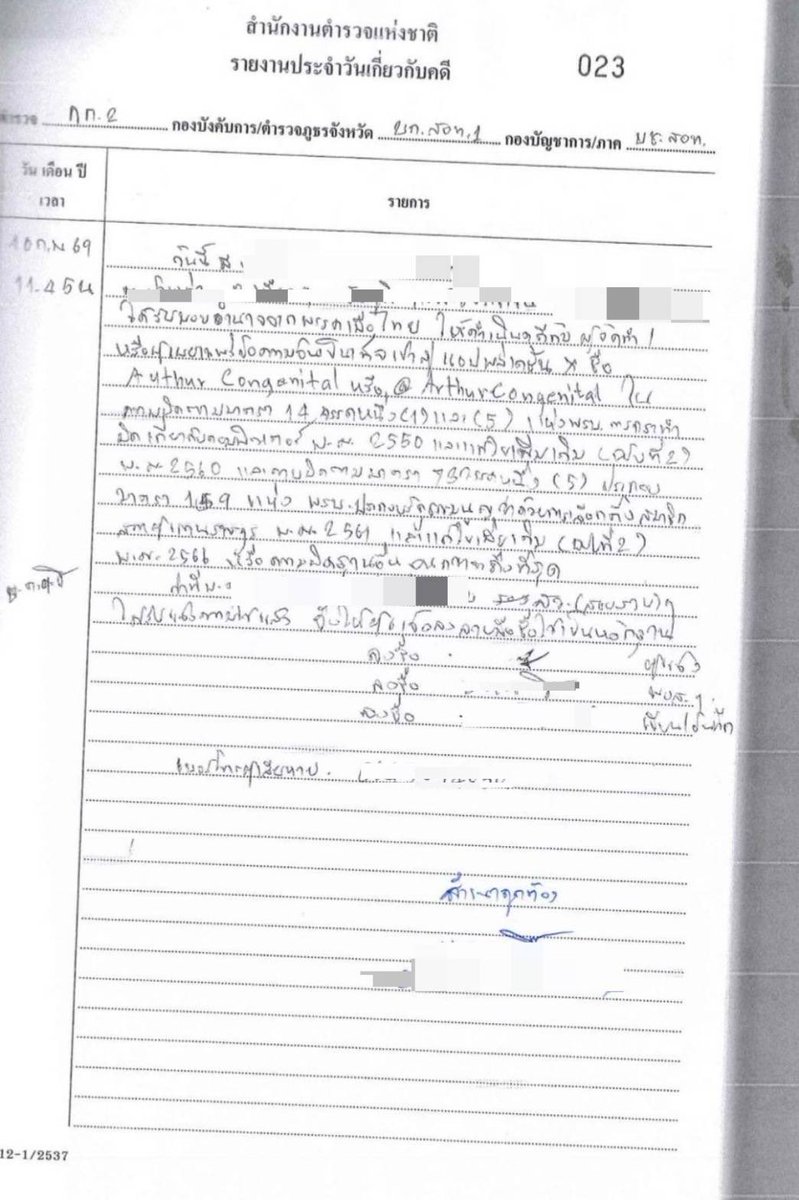 สำนักงานตำรวจแห่งชาติ
รายงานประจำวันเกี่ยวกับคดี
023
กก.2 กองบังคับการ/ตำรวจภูธรจังหวัด บก.สอท.1 กองบัญชาการ/ภาค บช.สอท.
วัน เดือน ปี
เวลา
รายการ
ก.พ 69
11.45 น
วันนี้
ได้รับมอบอำนาจจากพรรคเพื่อไทย ให้ดำเนินคดีกับ ผู้จัดทำ
หรือผู้เผยแพร่ข้อความอันเป็นเท็จเข้าสู่ แอปพลิเคชั่น X ชื่อ
Authur Congenital หรือ @ArthurCongenital ใน
ความผิดตามมาตรา 14 วรรคหนึ่ง (1) และ (5) แห่งพรบ. การกระทำ
ผิดเกี่ยวกับคอมพิวเตอร์ พ.ศ. 2550 และแก้ไขเพิ่มเติม (ฉบับที่ 2)
พ.ศ. 2560 และความผิดตามมาตรา วรรคหนึ่ง (5) ประกอบ
มาตรา 159 แห่ง พรบ. ประกอบรัฐธรรมนูญว่าด้วยการเลือกตั้งสมาชิก
สภาผู้แทนราษฎร พ.ศ. 2561 และแก้ไขเพิ่มเติม (ฉบับที่ 2)
พ.ศ. 2566 หรือ ความผิดฐานอื่น จนกว่าจะถึงที่สุด
ว่าที่ พ.ต. (สอบสวน)ฯ
ได้รับแจ้งความไว้แล้ว จึงให้ลงลายมือชื่อไว้เป็นหลักฐาน
ลงชื่อ ผู้แจ้ง
ลงชื่อ พงส.ฯ
ลงชื่อ เขียน/บันทึก
เบอร์โทรผู้เสียหาย
สำเนาถูกต้อง
12-1/2537